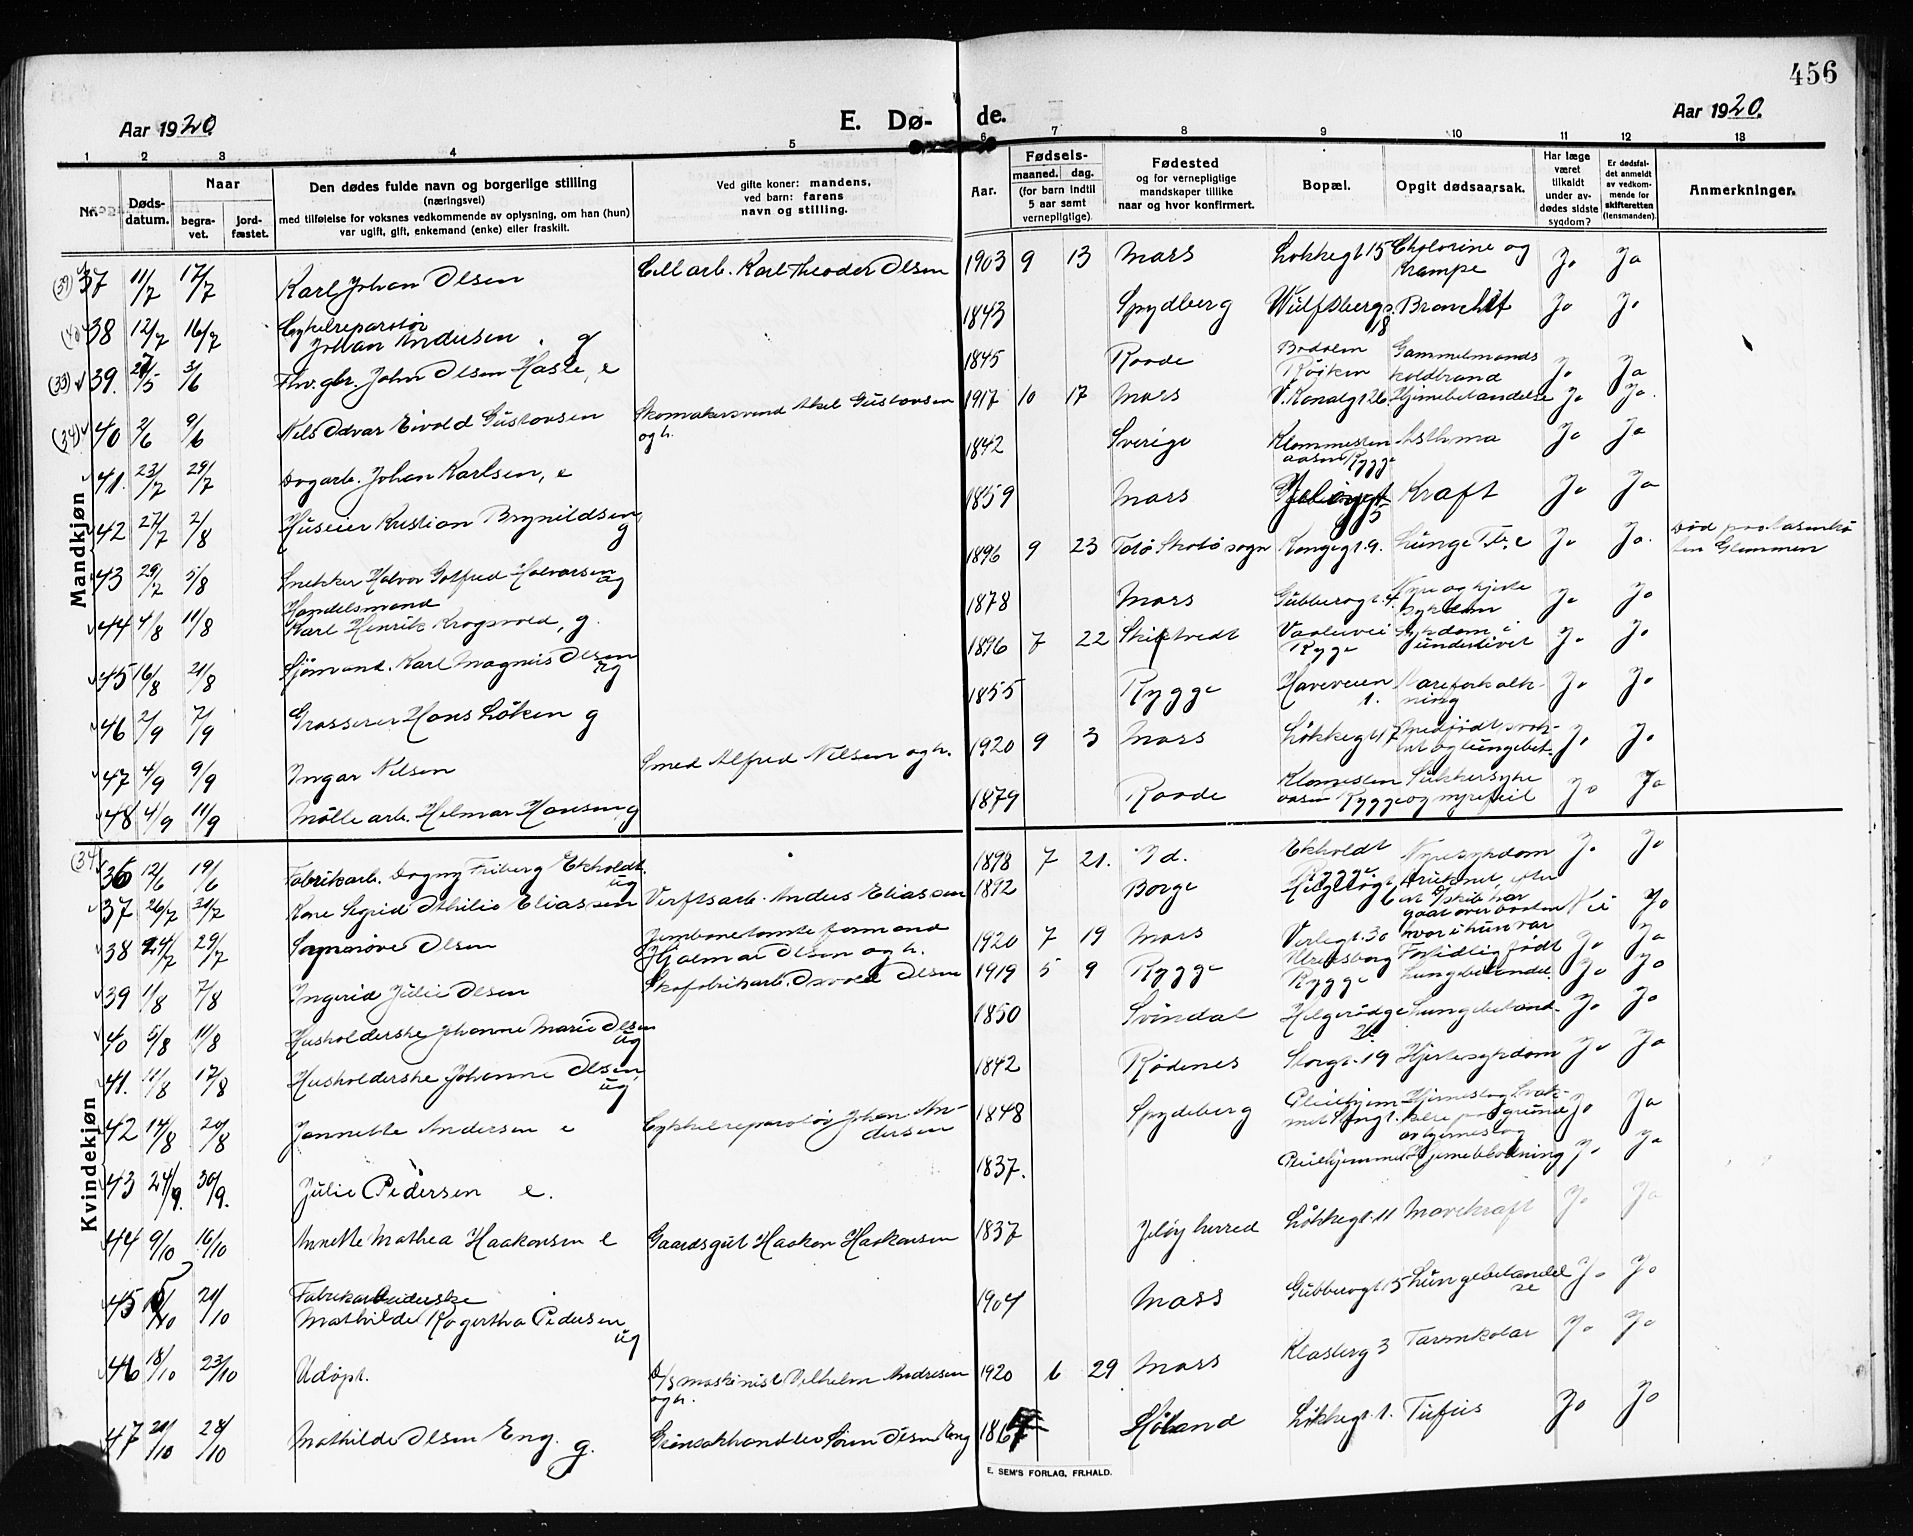 456
Aar 1920.
E. Dø- de.
Aar 1920.
1 2 3 4 5 6 7 8 9 10 11 12 13
Nr.
Døds-
datum.
Naar
begra-
vet.
jord-
fæstet.
Den dødes fulde navn og borgerlige stilling
(næringsvei)
med tilføielse for voksnes vedkommende av oplysning, om han (hun)
var ugift, gift, enkemand (enke) eller fraskilt.
Ved gifte koner: mandens,
ved barn: farens
navn og stilling.
Aar.
Fødsels-
maaned. dag.
(for barn indtil
5 aar samt
vernepligtige).
Fødested
og for vernepligtige
mandskaper tillike
naar og hvor konfirmert.
Bopæl.
Opgit dødsaarsak.
Har læge
været
tilkaldt
under av-
dødes sidste
sygdom?
Er dødsfal-
det anmeldt
av vedkom-
mende for
skifteretten
(lensmanden).
Anmerkninger.
Mandkjøn.
(39) 37 11/7 17/7 Karl Johan Olsen Cell arb. Karl Theodor Olsen 1903 9 13 Moss Løkkegt 15 Cholorine og Krampe Ja Ja
38 12/7 16/7 Cykelreparatør Johan Andersen. g 1843 Spydberg Wulfsbergs 18 Bronchit Ja Ja
(33) 39. 27/5 3/6 Fhv. gbr. John Olsen Hasle, e 1845 Raade Røiken Gammelmands koldbrand Ja Ja
(34) 40 2/6 9/6 Nils Odvar Eivold Gustavsen Skomakersvend Aksel Gustavsen og h. 1917 10 17 Moss V. Kanalgt 26. Hjernebetændelse Ja Ja.
41. 23/7 29/7 Dagarb. Johan Karlsen, e 1842 Sverige Klommesten aasen Rygge Asthma Ja Ja
42 27/7 2/8 Huseier Kristian Brynildsen, g 1859 Moss 5 Kraft Ja Ja
43 29/7 5/8 Snekker Halvor Gotfred Halvorsen ug 1896 9 23 Torsø Skabø sogn Kongegt. 9. Lunge Ja Ja. Død paa Glemmen
44 4/8 11/8 Handelsmand Karl Henrik Krogsvold, g. 1878 Moss Gubberogt. 4. Nyre og hjerte sykdom Ja Ja
45 16/8 21/8 Sjømand. Karl Magnus Olsen ug 1896 7 22 Skiptvedt Vaalervei Rygge Sykdom i underlivet Ja Ja
46 2/9 7/9 Grosserer Hans Løken g 1855 Rygge Haveveien 1. Aareforkalkning Ja Ja
47 4/9 9/9 Ingar Nilsen Smed Alfred Nilsen og h. 1920 9 3 Moss Løkkegt 17 Medfødt svakhet og lungebet. Ja Ja
48 4/9 11/9 Mølle arb. Helmar Hansen g 1879 Raade Klomesten aasen Rygge Sukkersyke og nyrefeil Ja Ja
Kvindekjøn
(34) 36 12/6 19/6 Fabrikarb. Dagny Friberg Ekholdt. ug 1898 7 21. Id. Ekholdt Rygge Nyresykdom Ja Ja
37 26/7 31/7 Kone Sigrid Othilie Eliassen Verftsarb. Anders Eliassen 1892 Borge Druknet, efter at D/skib har gaat over baaten hvori hun var Nei Ja
38 24/7 29/7 Olsen Jernbanetomte formand Hjalmar Olsen og h. 1920 7 19 Moss Verlegt. 30 Fortidlig født Ja Ja
39 1/8 7/8 Ingerid Julie Olsen Skofabrikarb. Osvald Olsen 1919 5 9 Rygge Rygge Lungebetændel. Ja Ja
40 5/8 11/8 Husholderske Johanne Marie Olsen ug 1850 Svindal Helgerødgt Lungebetænd. Ja Ja
41. 11/8 17/8 Husholderske Johanne Olsen, ug 1842 Rødenes Storgt. 19 Hjertesykdom Ja Ja
42 14/8 20/8 Jannette Andersen e Cykkelreparatør Johan Andersen 1848 Spydeberg Pleiehjemmet Hjerneslag Svakkelse paa grund av hjerneslag Ja Ja
43 24/9. 30/9. Julie Pedersen e. 1837. Pleiehjemmet Hjerneblødning Ja Ja
44 9/10 16/10 Annette Mathea Haakonsen e Gaardsgut Haakon Haakonsen 1837 Jeløy herred Løkkegt. 11 Mavekraft Ja Ja
45 15/10 21/10 Fabrikarbeiderske Mathilde Ragertha Pedersen ug 1904 Moss Gubberogt 15 Lungebetændelse Ja Ja
46 18/10 23/10 Udøpt. D/s maskinist Vilhelm Andresen og h. 1920 6 29 Moss Klasberg 3 Tarmkatar Ja Ja
47 21/10 28/10 Mathilde Olsen Eng. g. Grønsakhandler Søren Olsen Eng 1867 Høland Løkkegt. 1. Tufus Ja Ja
E. SEM'S FORLAG, FR.HALD.